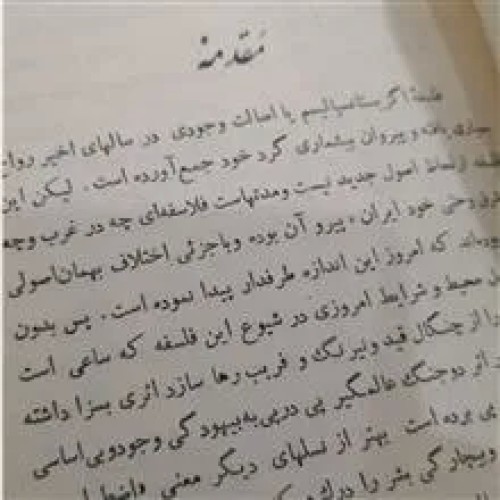 مقدمه
فلسفهٔ اگزیستانسیالیسم یا اصالت وجودی در سالهای اخیر رواج
بسیاری یافته و پیروان بیشماری گرد خود جمع‌آورده است. لیکن این
از لحاظ اصول جدید نیست و مدتهاست فلاسفه‌ای چه در غرب و چه
شرق و حتی خود ایران، پیرو آن بوده و با جزئی اختلاف بهمان اصولی
بوده‌اند که امروز این اندازه طرفدار پیدا نموده است. پس بدون
محیط و شرایط امروزی در شیوع این فلسفه که ساعی است
را از چنگال قید و نیرنگ و فریب رها سازد اثری بسزا داشته
اثر دو جنگ عالمگیر پی در پی به بیهودگی وجود و بی‌اساسی
پی برده است بهتر از نسلهای دیگر معنی
و بیچارگی بشر را درک